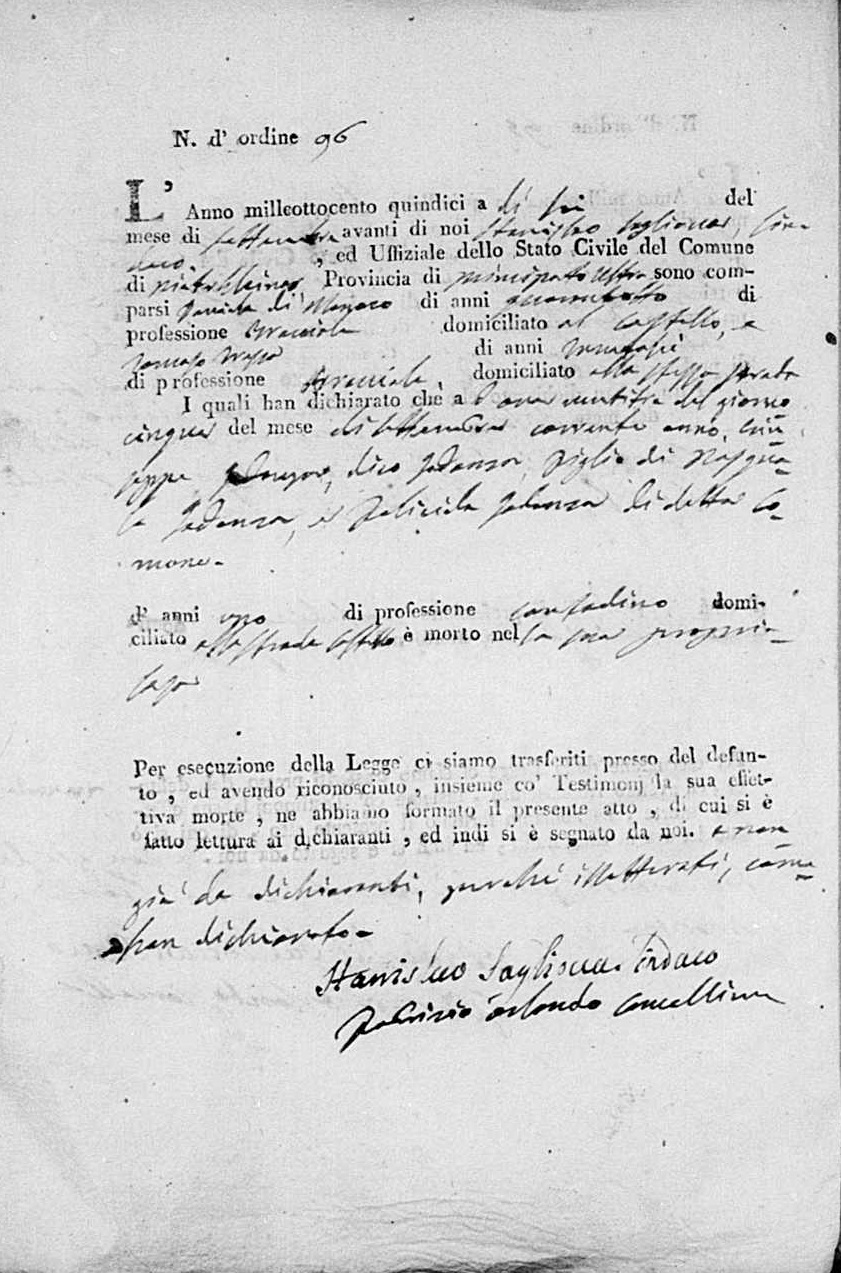 N. d' ordine 96
L' Anno milleottocento quindici a di sei del
mese di settembre avanti di noi Stanislao Sagliocca, Sin=
daco, , ed Uffiziale dello Stato Civile del Comune
di Provincia di Principato Ultra sono com-
parsi Daniele di Monaco di anni quarantotto di
professione Bracciale domiciliato al Castello, e
Tomaso di anni
di professione Bracciale, domiciliato alla stessa strada
I quali han dichiarato che a ore ventitre del giorno
cinque del mese di settembre corrente anno, Giu=
seppe dico Jadanza, figlio di Pasqua=
le Jadanza, e Jadanza di detta Co=
mone.
d' anni uno di professione contadino domi-
ciliato alla strada Castello è morto nella sua propria
casa
Per esecuzione della Legge ci siamo trasferiti presso del defun-
to , ed avendo riconosciuto , insieme co' Testimonj la sua effet-
tiva morte , ne abbiamo formato il presente atto , di cui si è
fatto lettura ai dichiaranti , ed indi si è segnato da noi. e non
già da dichiaranti, perché illetterati, come
han dichiarato=
Stanislao Sagliocca Sindaco
Orlando Cancelliere